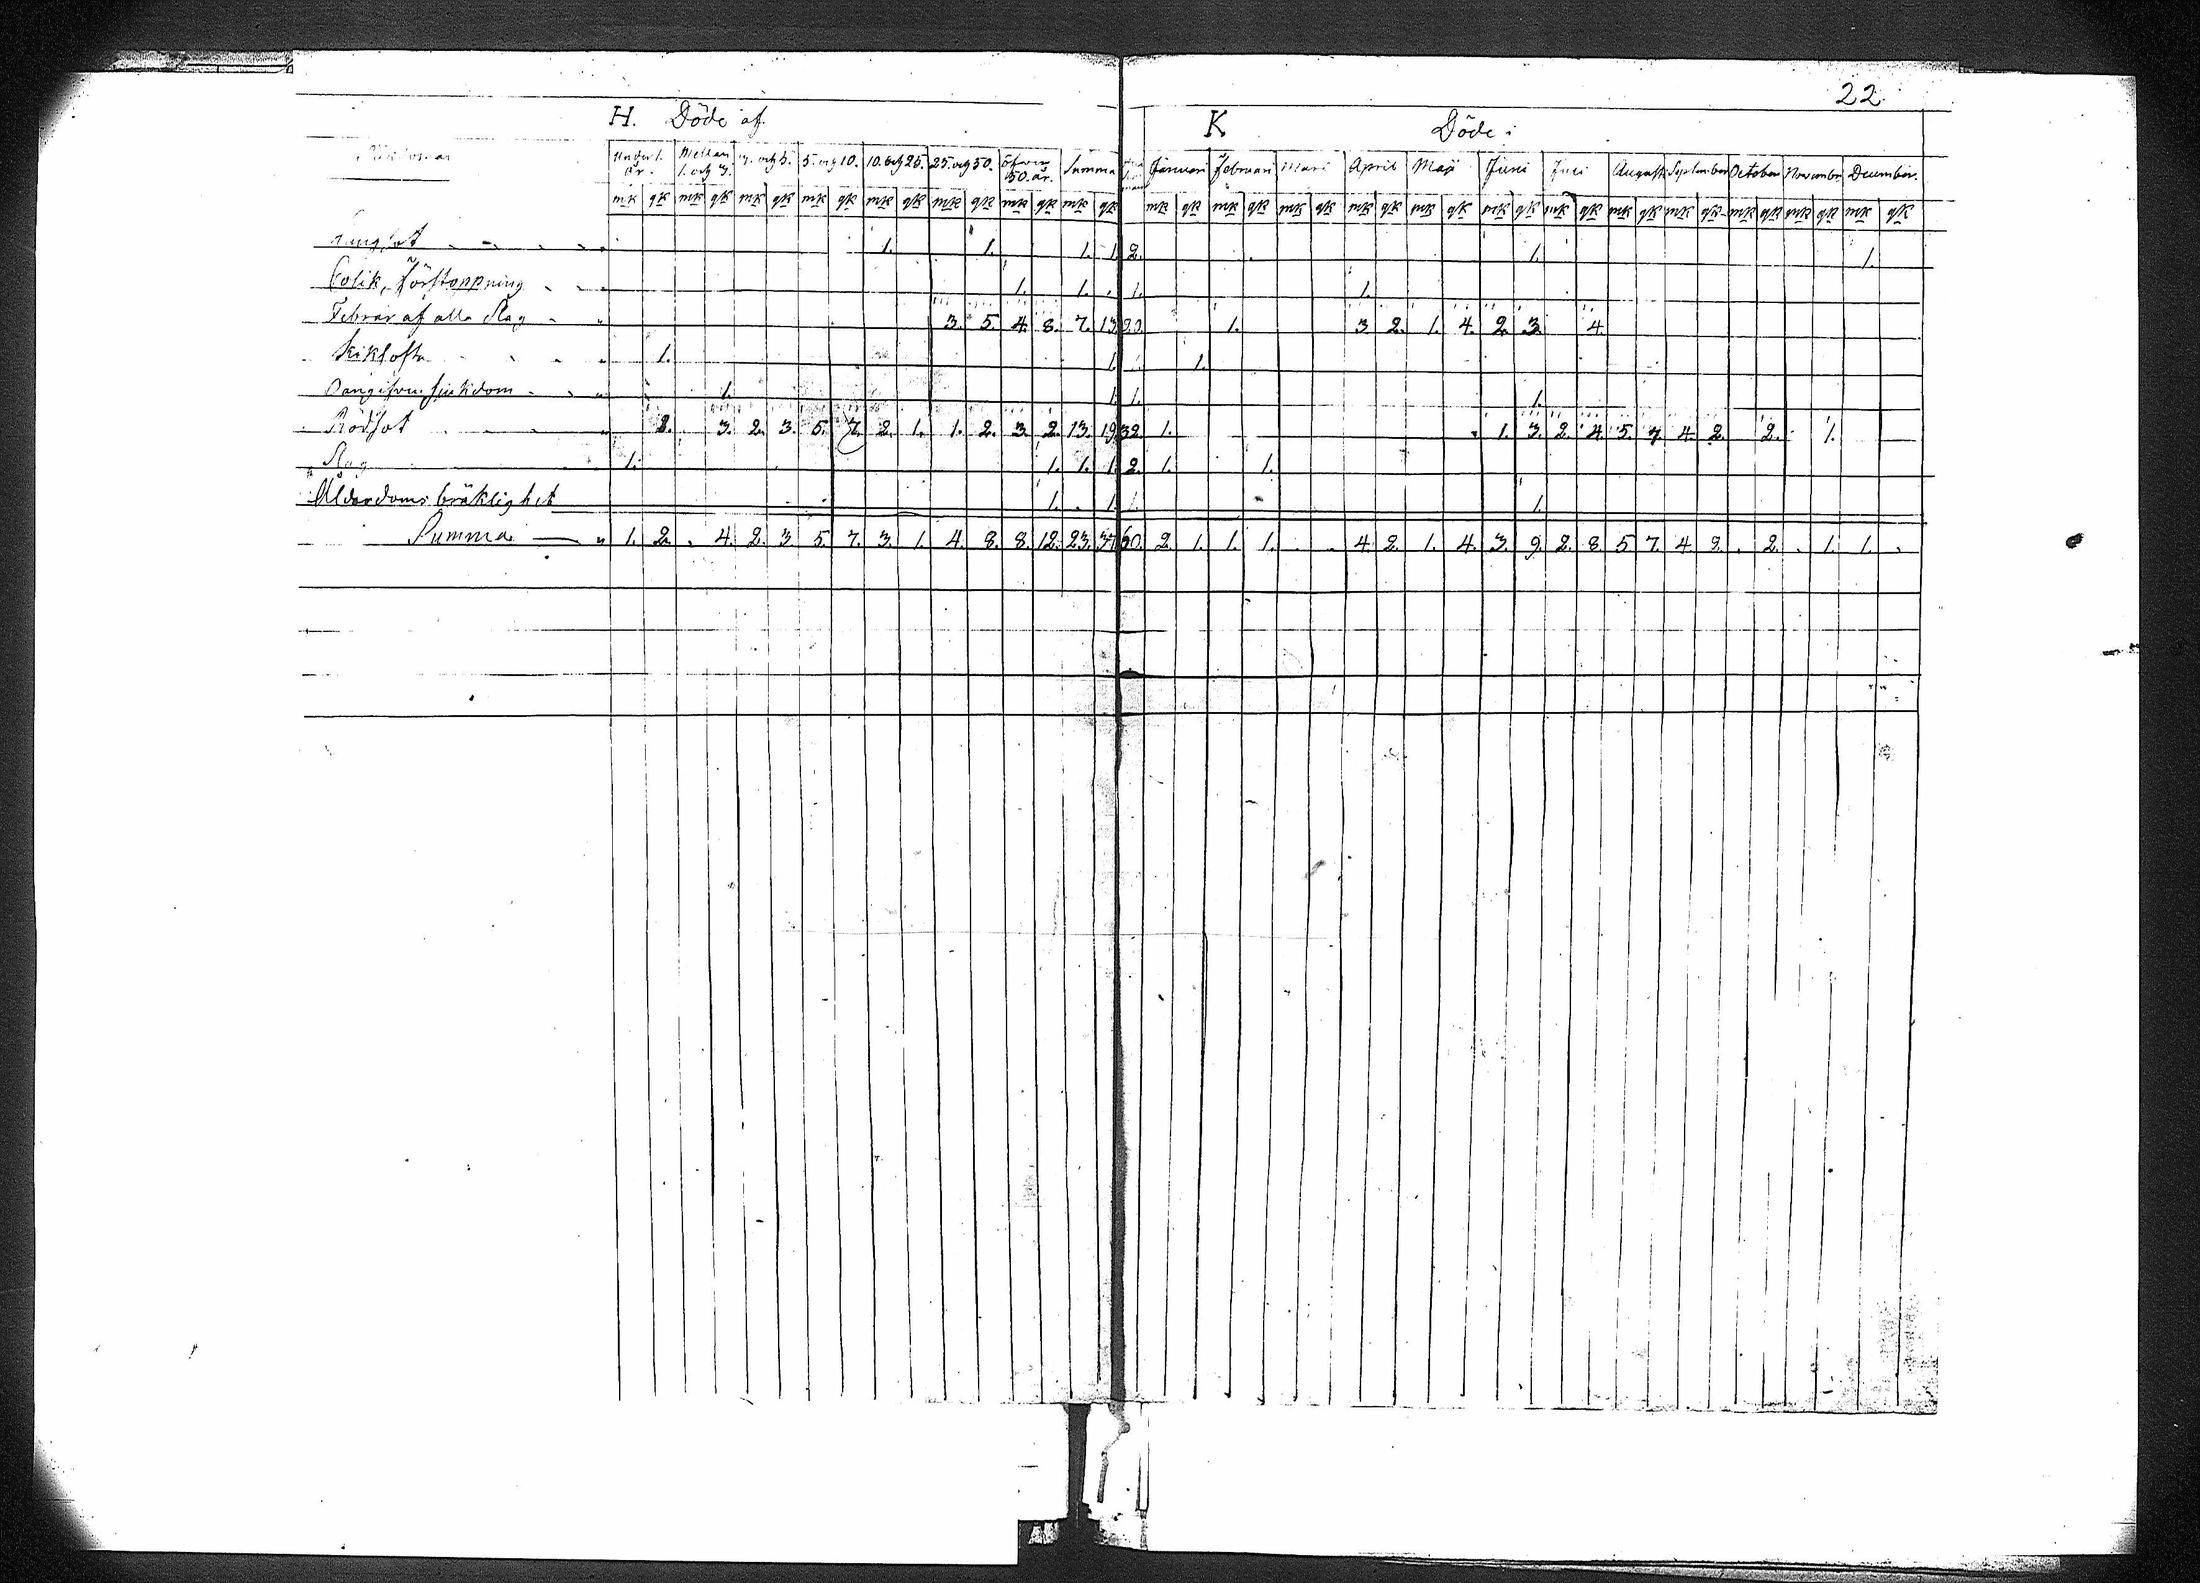 22.
H. Döde af
K Döde i
Under 1. år. Mellan 1. och 3. 3. och 5. 5. och 10. 10. och 25. 25. och 50. öfver 50. år. Summa Januari Februari Mars April Maji Juni Juli August September October November December.
mk qk mk qk mk qk mk qk mk qk mk qk mk qk mk qk mk qk mk qk mk qk mk qk mk qk mk qk mk qk mk qk mk qk mk qk mk qk mk qk
Lungsot 1. 1. 1. 1. 2. 1. 1.
Colik, Förstoppning 1. 1. 1. 1.
Febrar af alla slag 3. 5. 4. 8. 7. 13 20. 1. 3 2. 1. 4. 2. 3. 4.
Kikhosta 1. 1. 1.
sjukdom 1. 1. 1. 1.
Rödsot 2. 3. 2. 3. 5. 7. 2. 1. 1. 2. 3. 2. 13. 19. 32. 1. 1. 3. 2. 4. 5. 7. 4. 2. 2. 1.
Slag 1. 1. 1. 1. 2. 1. 1.
Ålderdoms bräklighet 1. 1. 1. 1.
Summa 1. 2. 4. 2. 3. 5. 7. 3. 1. 4. 8. 8. 12. 23. 37 60. 2. 1. 1. 1. 4. 2. 1. 4. 3. 9. 2. 8. 5 7. 4. 2. 2. 1. 1.